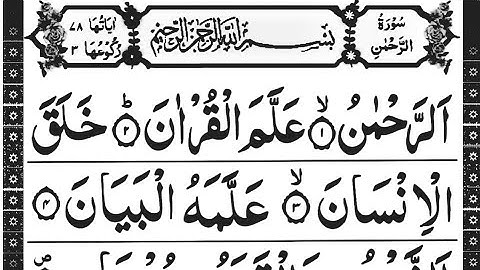 سُوْرَةُ الرَّحْمٰنِ
بِسْمِ اللّٰهِ الرَّحْمٰنِ الرَّحِيْمِ
اٰيَاتُهَا ٧٨
رُكُوْعُهَا ٣
اَلرَّحْمٰنُ ۙ﴿١﴾ عَلَّمَ الْقُرْاٰنَ ؕ﴿٢﴾ خَلَقَ
الْاِنْسَانَ ۙ﴿٣﴾ عَلَّمَهُ الْبَيَانَ ﴿٤﴾